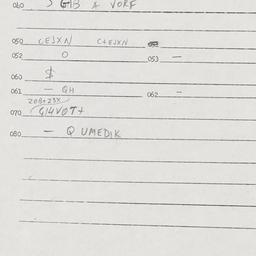 040 GIB A VORF
050 CEJXN C+EJXN
052 O 053 —
060 $
061 — QH 062 -
20B+23X
070 G14VOT+
080 — Q UMEDIK